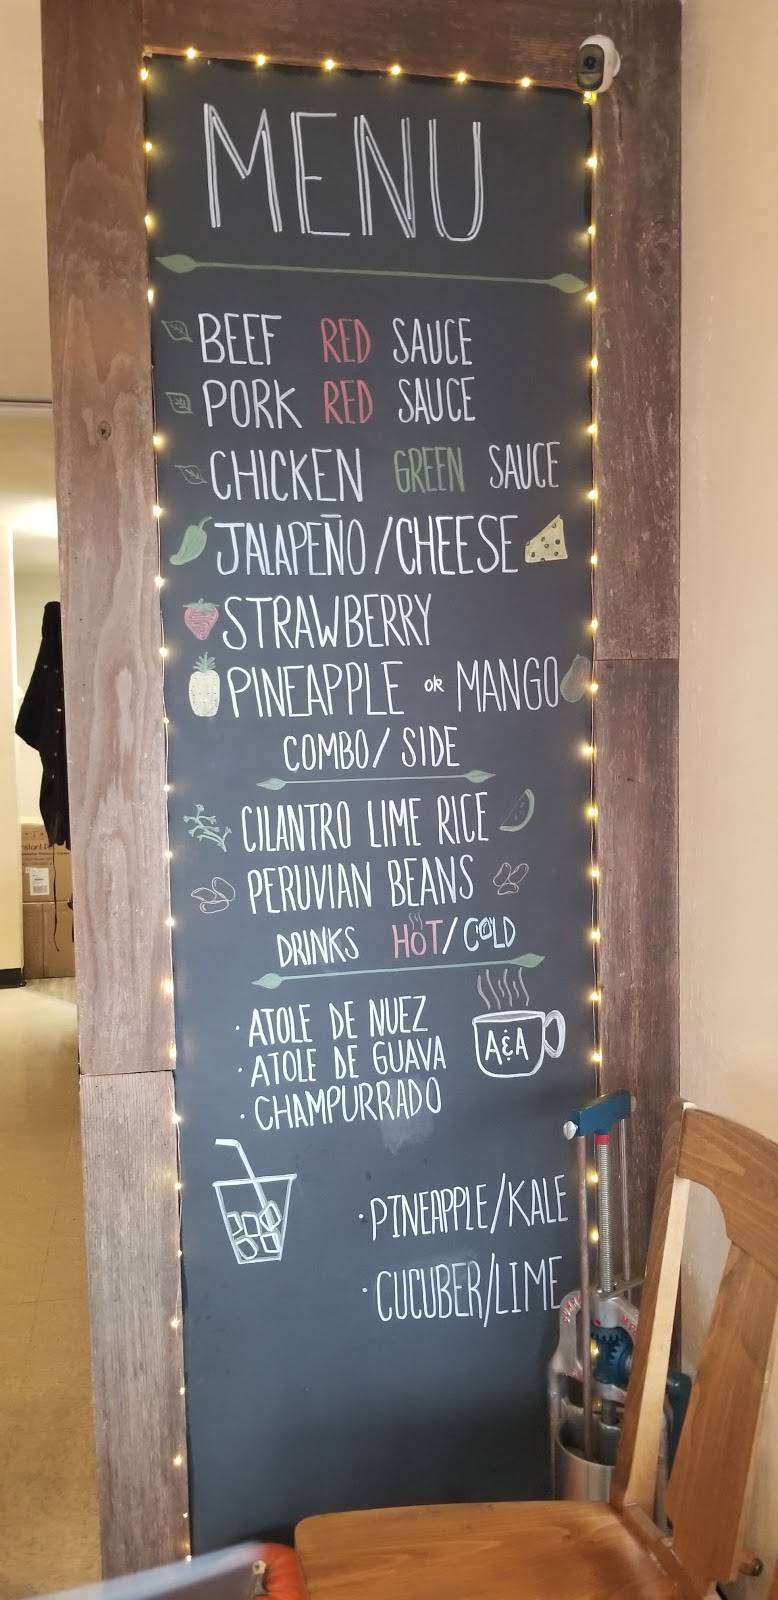 MENU
BEEF RED SAUCE
PORK RED SAUCE
CHICKEN GREEN SAUCE
JALAPEÑO/CHEESE
STRAWBERRY
PINEAPPLE OR MANGO
COMBO/SIDE
CILANTRO LIME RICE
PERUVIAN BEANS
DRINKS HOT/COLD
· ATOLE DE NUEZ
· ATOLE DE GUAVA
· CHAMPURRADO
A&A
· PINEAPPLE/KALE
· CUCUBER/LIME